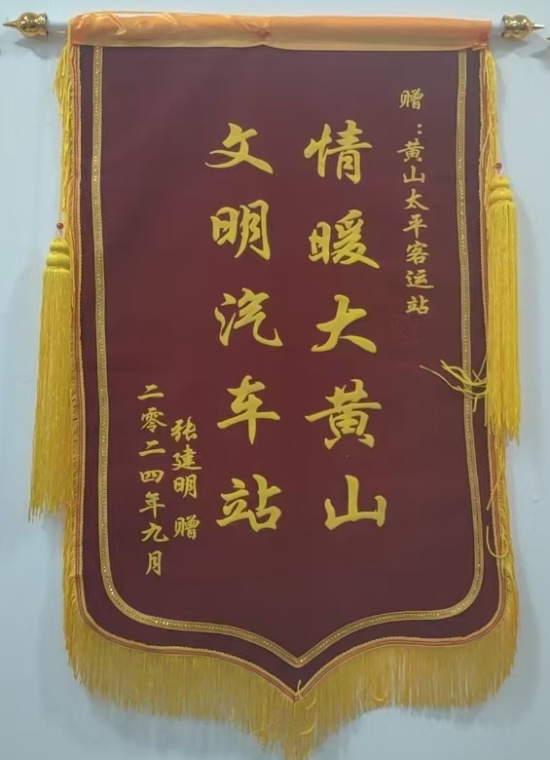 赠：黄山太平客运站
情暖大黄山
文明汽车站
张建明 赠
二零二四年九月